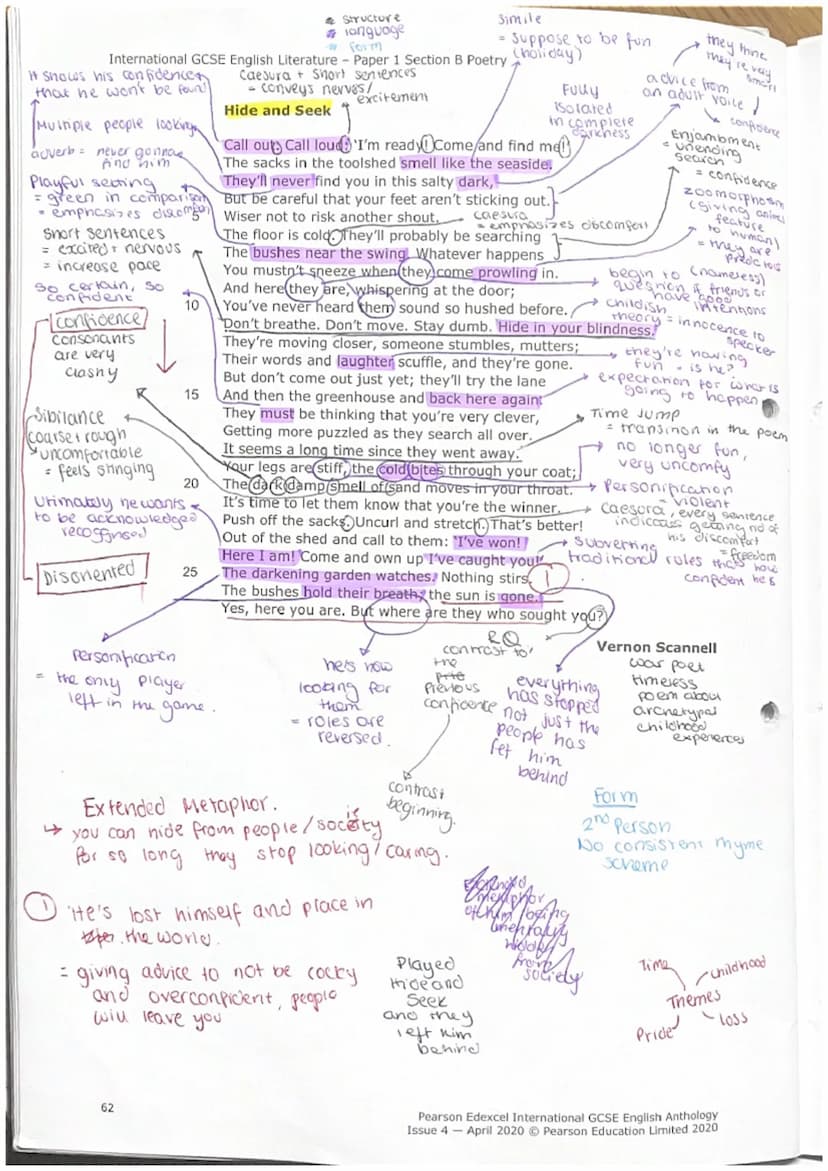 * structure
* language
* form
International GCSE English Literature – Paper 1 Section B Poetry
simile
= suppose to be fun
(holiday)
they think
they're very
smart
It shows his confidence
that he won't be found
Caesura + short sentences
= conveys nerves/
excitement
Fully
isolated
in complete
darkness
advice from
an adult voice
confidence
Hide and Seek
Multiple people looking
adverb = never gonna
find him
Playful setting
= green in comparison
= emphasizes discomfort
short sentences
= excited + nervous
= increase pace
so certain, so
confident
confidence
consonants
are very
clashy
Sibilance
coarse + rough
uncomfortable
= feels stinging
Ultimately he wants
to be acknowledged
recognised
Disoriented
Call out. Call loud: 'I'm ready! Come and find me!'
The sacks in the toolshed smell like the seaside.
They'll never find you in this salty dark,
But be careful that your feet aren't sticking out.
Wiser not to risk another shout.
The floor is cold. They'll probably be searching
The bushes near the swing. Whatever happens
You mustn't sneeze when they come prowling in.
And here they are, whispering at the door;
10 You've never heard them sound so hushed before.
Don't breathe. Don't move. Stay dumb. Hide in your blindness.
They're moving closer, someone stumbles, mutters;
Their words and laughter scuffle, and they're gone.
But don't come out just yet; they'll try the lane
15 And then the greenhouse and back here again.
They must be thinking that you're very clever,
Getting more puzzled as they search all over.
It seems a long time since they went away.
Your legs are stiff, the cold bites through your coat;
20 The dark damp smell of sand moves in your throat.
It's time to let them know that you're the winner.
Push off the sacks. Uncurl and stretch. That's better!
Out of the shed and call to them: 'I've won!
Here I am! Come and own up I've caught you!'
25 The darkening garden watches. Nothing stirs.
1
The bushes hold their breath; the sun is gone.
Yes, here you are. But where are they who sought you?
Vernon Scannell
Enjambment
= unending
search
= confidence
caesura
= emphasizes discomfort
zoomorphism
(giving animal
feature
to human)
= they are
predators
begin to (nameless)
question if friends or
have good
intentions
childish
theory = innocence to
speaker
they're having
fun - is he?
expectation for what is
going to happen
Time jump
= transition in the poem
no longer fun,
very uncomfy
Personification
= violent
caesura, every sentence
indicates getting rid of
his discomfort
= freedom
subverting
traditional rules that how
confident he is
Personification
= the only player
left in the game.
he's now
looking for
them
= roles are
reversed.
RQ
contrast to
the
previous
confidence
contrast
beginning.
everything
has stopped
not just the
people has
left him
behind
war poet
timeless
poem about
archetypal
childhood
experiences
Extended Metaphor.
↳ you can hide from people/society
for so long they stop looking/caring.
Form
2nd Person
No consistent rhyme
scheme
1 He's lost himself and place in
the world.
= giving advice to not be cocky
and overconfident, people
will leave you
Extended
metaphor
of him being
mentally
hidden
from
society
Played
Hide and
Seek
and they
left him
behind
Time
childhood
Themes
Pride
loss
62
Pearson Edexcel International GCSE English Anthology
Issue 4 — April 2020 © Pearson Education Limited 2020